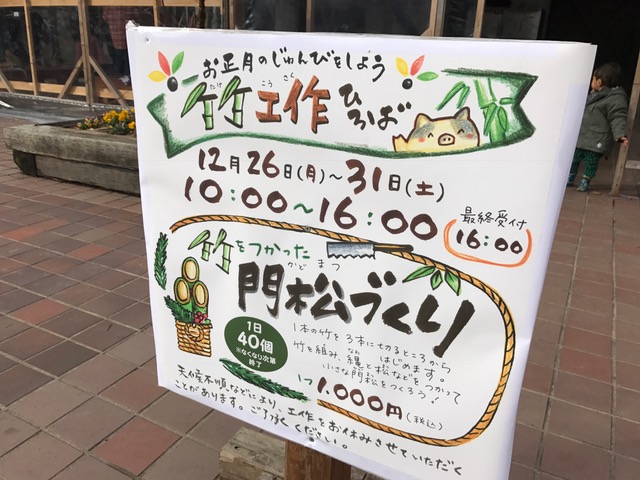 お正月のじゅんびをしよう
竹工作ひろば
たけ こう さく
12月26日(月)~31日(土)
10:00~16:00
最終受付
16:00
竹をつかった
かど まつ
門松づくり
1日
40個
※なくなり次第
終了
1本の竹を3本に切るところから
はじめます。
竹を組み、縄と松などをつかって
なわ
小さな門松をつくろう!
1つ1,000円(税込)
天候不順などにより、工作をお休みさせていただく
ことがあります。ご了承ください。